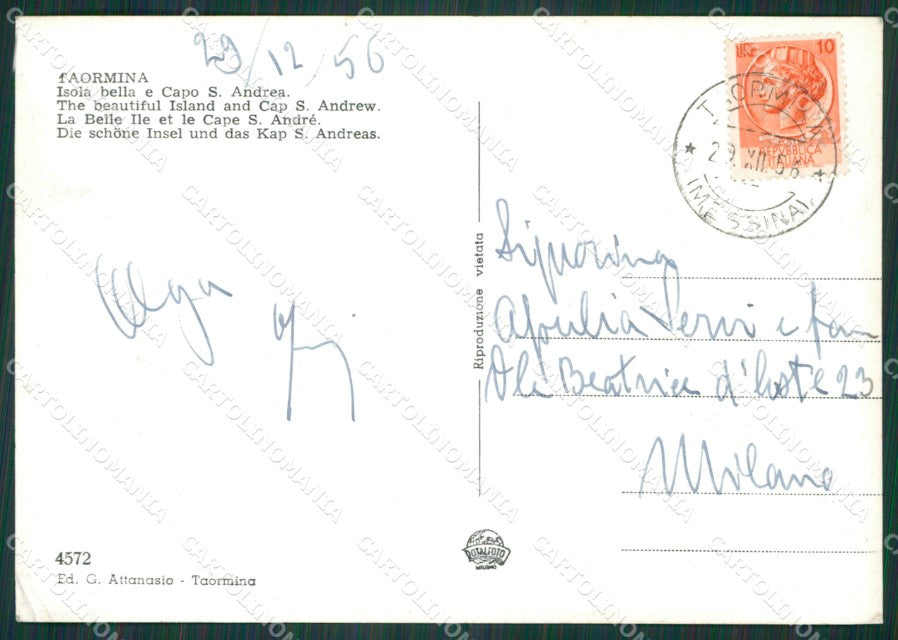 29/12/56
TAORMINA
Isola bella e Capo S. Andrea.
The beautiful Island and Cap S. Andrew.
La Belle Ile et le Cape S. André.
Die schöne Insel und das Kap S. Andreas.
LIRE 10
REPVBBLICA
ITALIANA
TAORMINA
29.XII.56
(MESSINA)
Olga
Signorina
Apulia Servi e fam
Vle Beatrice d'Este 23
Milano
Riproduzione vietata
4572
Ed. G. Attanasio - Taormina
ROTALFOTO
MILANO
CARTOLINOMANIA